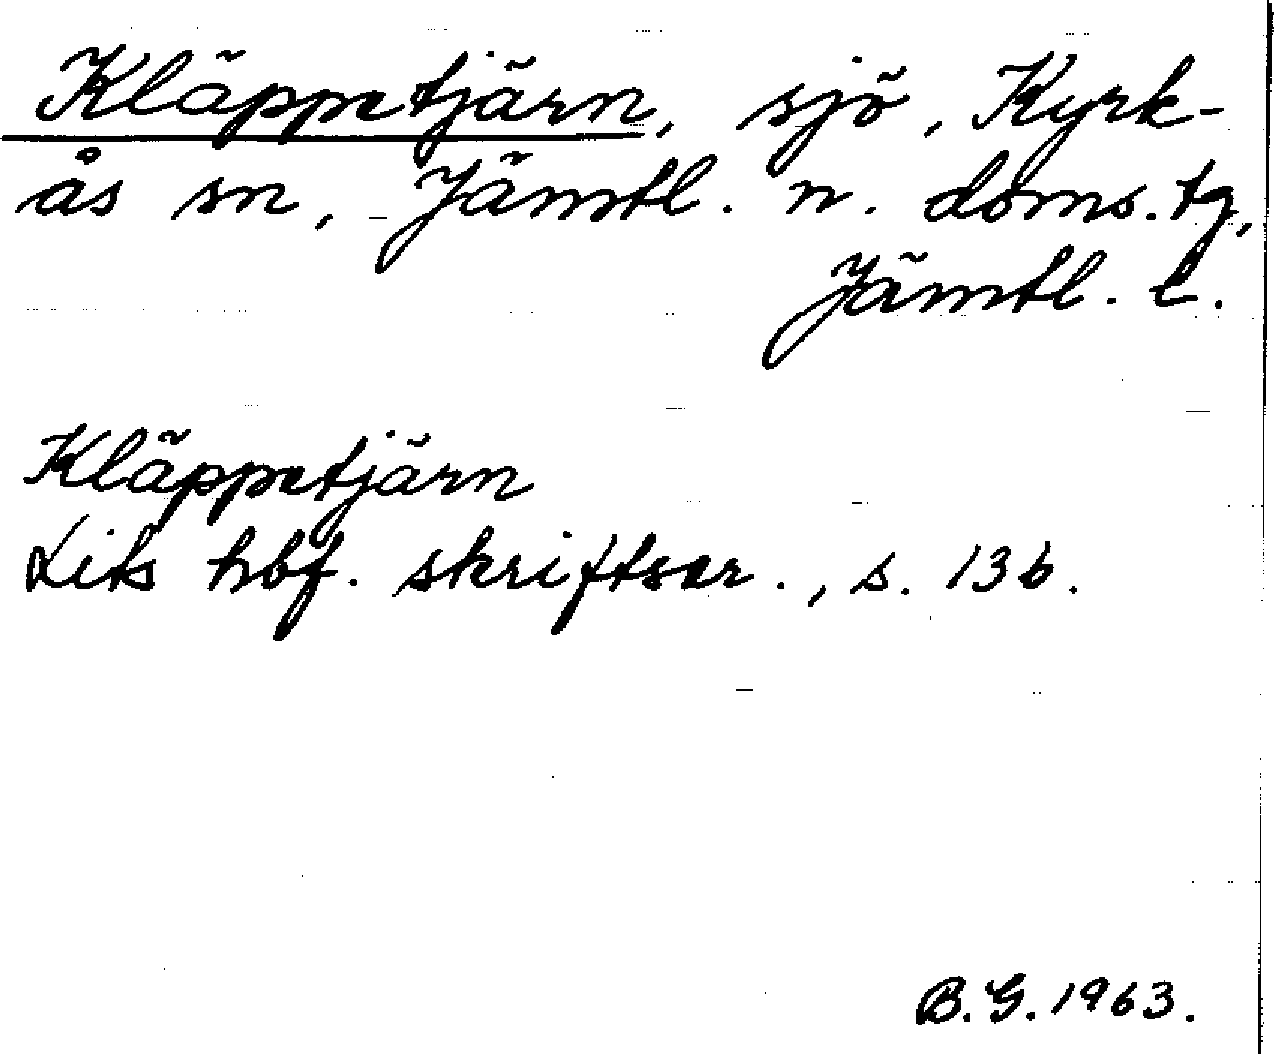 Kläppetjärn, sjö, Kyrk-
ås sn, Jämtl. n. doms.tg,
Jämtl. l.
Kläppetjärn
Lits hbf. skriftser., s. 136.
B.G. 1963.